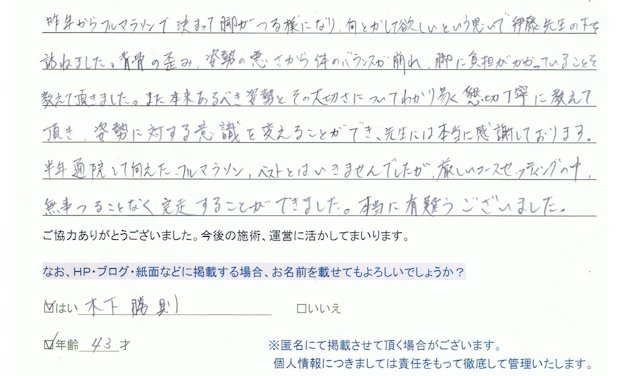 昨年からフルマラソンで決まって脚がつる様になり、何とかして欲しいという思いで伊藤先生の下を
訪ねました。背骨の歪み、姿勢の悪さから体のバランスが崩れ、脚に負担がかかっていることを
教えて頂きました。また本来あるべき姿勢とその大切さについてわかり易く懇切丁寧に教えて
頂き、姿勢に対する意識を変えることができ、先生には本当に感謝しております。
半年通院して向えた、フルマラソン、ベストとはいきませんでしたが、厳しいコースセッティングの中、
無事つることなく完走することができました。本当に有難うございました。
ご協力ありがとうございました。今後の施術、運営に活かしてまいります。
なお、HP・ブログ・紙面などに掲載する場合、お名前を載せてもよろしいでしょうか？
☑はい 木下 勝則 □いいえ
☑年齢 43 才 ※匿名にて掲載させて頂く場合がございます。
個人情報につきましては責任をもって徹底して管理いたします。